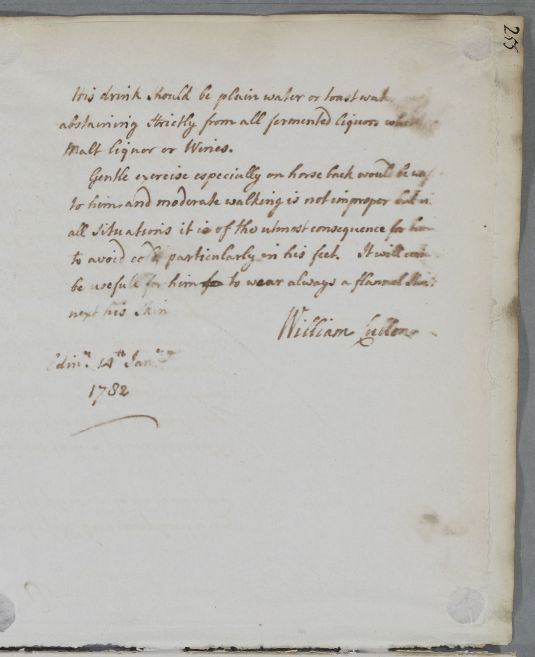 255
His drink should be plain water or toast
abstaining strictly from all fermented liquors
Malt liquor or Wines.
Gentle exercise especially on horse back would be
to him and moderate walking is not improper but in
all Situations it is of the utmost consequence for him
to avoid cold particularly in his feet. It will
be usefull for him to wear always a flannel
next his Skin
William Cullen
Edinr. 14th Janry
1782